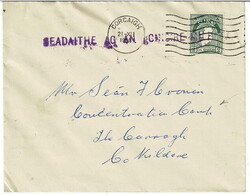 CORCAIGH
CEADAITHE AG AN
Mr Seán T Cronin
Concentration Camp
The Curragh
Co Kildare